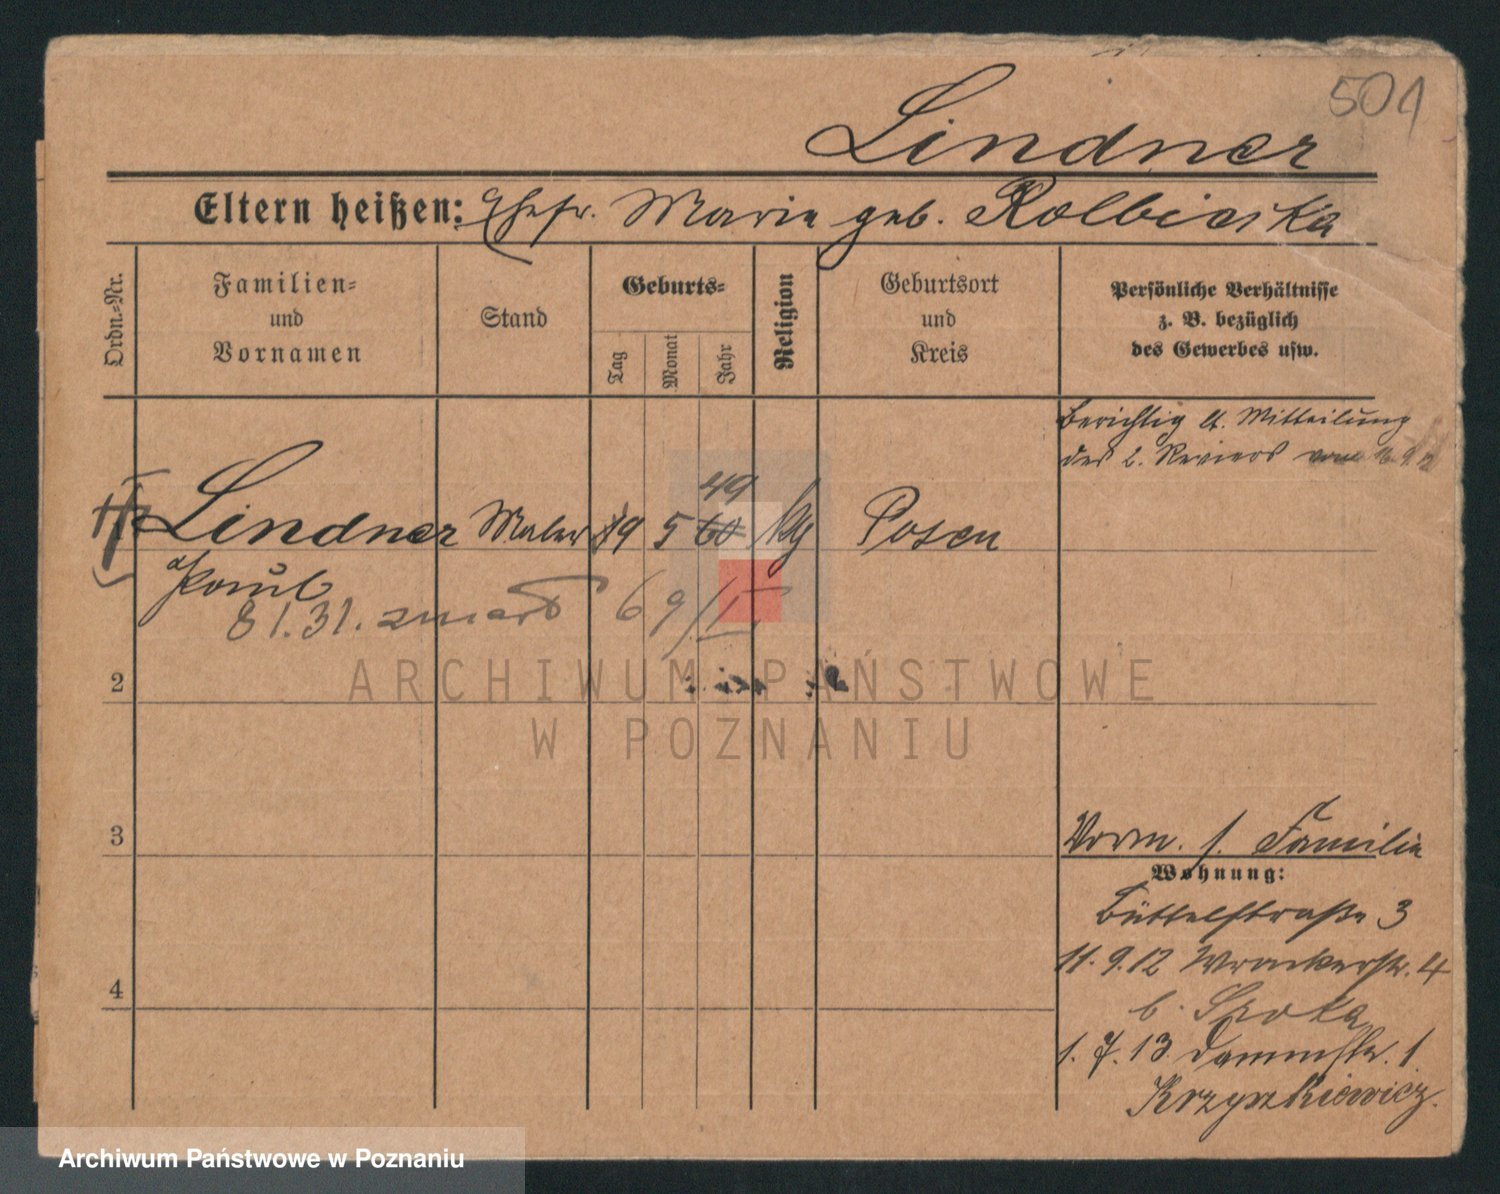 501
Lindner
Eltern heißen: Ehefr. Marie geb. Kolbieiska
Ordn.-Nr.
Familien-
und
Vornamen
Stand
Geburts-
Tag
Monat
Jahr
Religion
Geburtsort
und
Kreis
Persönliche Verhältnisse
z. B. bezüglich
des Gewerbes usw.
Berichtig lt. Mitteilung
des 2. Reviers vom
49
Lindner Maler 19 5 60 kg Posen
Paul
81.31. zmarł 69/I
2
3
4
Vorm. s. Familie
Wohnung:
Büttelstraße 3
11.9.12 Wronkerstr. 4
b. Sroka
1.7.13 Dammstr. 1
Krzyszkiewicz.
ARCHIWUM PAŃSTWOWE
W POZNANIU
Archiwum Państwowe w Poznaniu